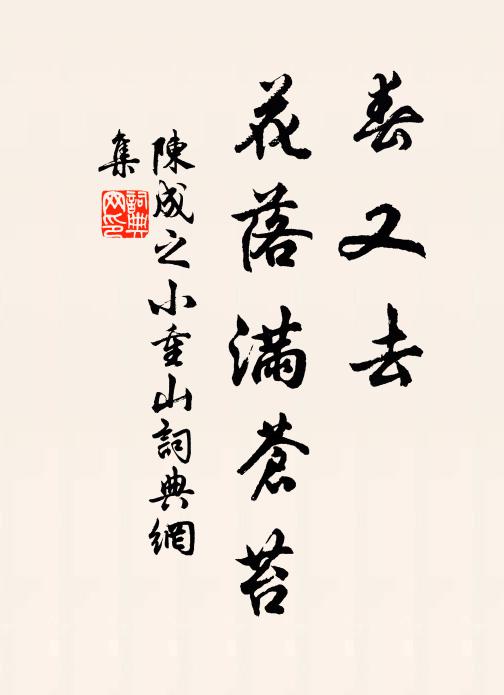 春又去
花落滿蒼苔
陳成之小重山詞典網
集
詞典
网印